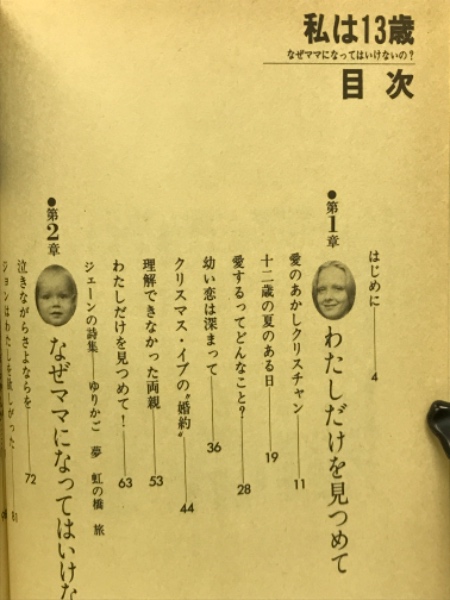 私は13歳
なぜママになってはいけないの?
目次
はじめに——4
●第1章
わたしだけを見つめて
愛のあかしクリスチャン——11
十二歳の夏のある日——19
愛するってどんなこと?——28
幼い恋は深まって——36
クリスマス・イブの“婚約”——44
理解できなかった両親——53
わたしだけを見つめて!——63
ジェーンの詩集——ゆりかご 夢 虹の橋 旅
●第2章
なぜママになってはいけな
泣きながらさよならを——72
ジョンはわたしを欲しがった——81